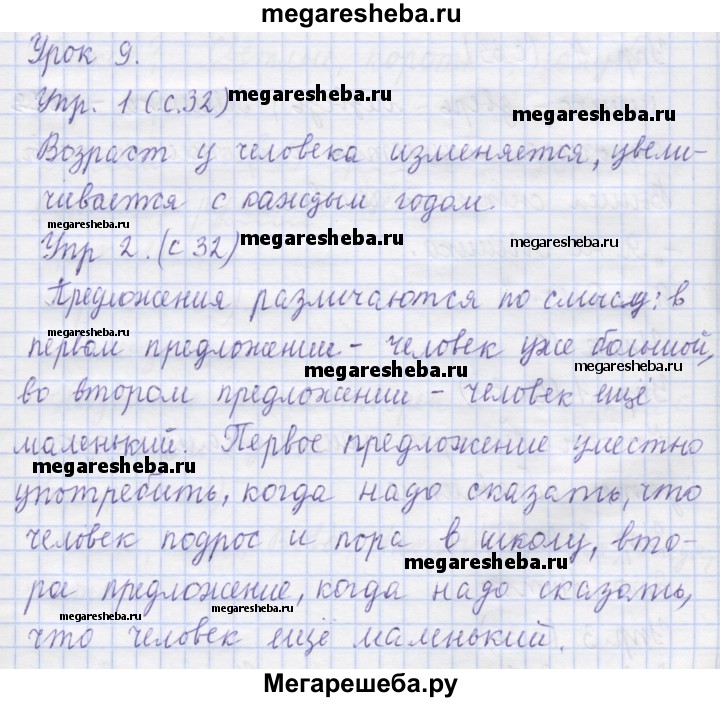 megaresheba.ru
Урок 9.
Упр. 1 (с.32) megaresheba.ru
megaresheba.ru
Возраст у человека изменяется, увели-
чивается с каждым годом.
megaresheba.ru
Упр 2. (с 32) megaresheba.ru megaresheba.ru
Предложения различаются по смыслу: в
megaresheba.ru
первом предложении - человек уже большой,
megaresheba.ru
во втором предложении - человек ещё
megaresheba.ru
маленький. Первое предложение уместно
megaresheba.ru
употребить, когда надо сказать, что
человек подрос и пора в школу, вто-
megaresheba.ru
рое предложение, когда надо сказать,
megaresheba.ru megaresheba.ru
что человек ещё маленький.
megaresheba.ru
Мегарешеба.ру